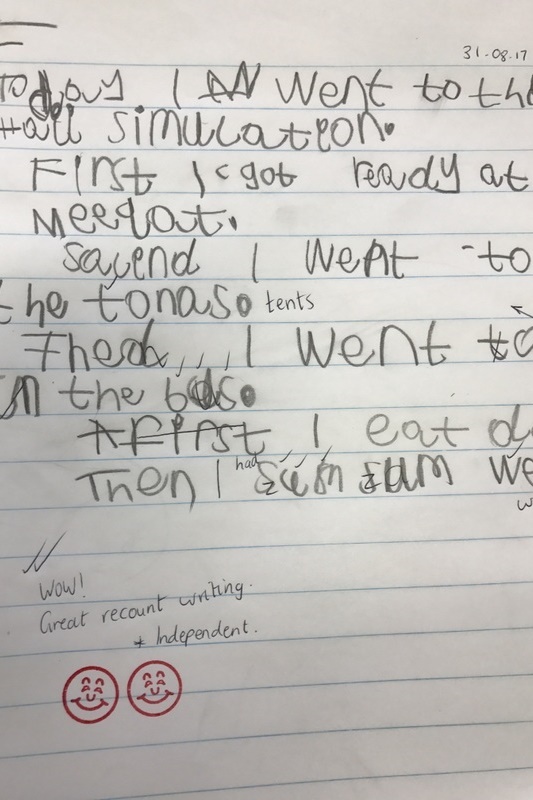 31-08-17
Today I went to the
Hall simulation.
First I got ready at
Meeqat.
Sacend I went to
the tonaso tents
Thed I went to
in the bus.
AFirst I eat
Then I had sum
Wow!
Great recount writing.
* Independent.